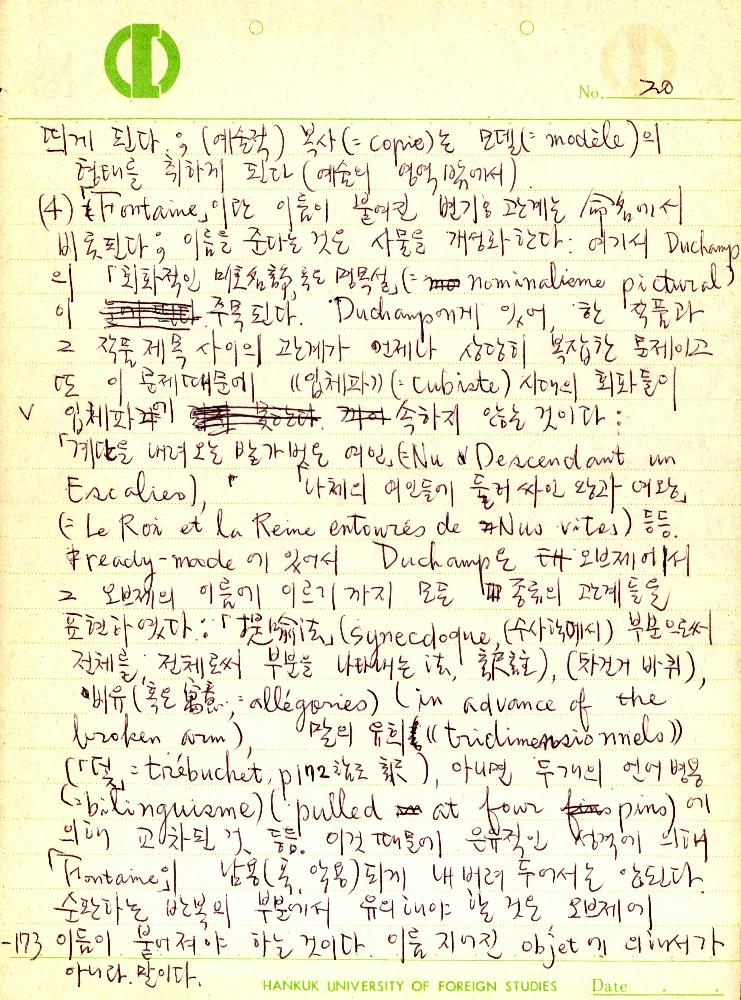 No. 20
띄게 된다. ; (예술적) 복사(= copie)는 모델(= modèle)의
형태를 취하게 된다 (예술의 영역 에서)
(4) 「Fontaine」이란 이름이 붙여진 변기와 관계는 命名에서
비롯된다; 이름을 준다는 것은 사물을 개성화한다: 여기서 Duchamp
의 「회화적인 唯名論, 혹은 명목설」(= nominalisme pictural)
이 주목된다. Duchamp에게 있어, 한 작품과
그 작품 제목 사이의 관계가 언제나 상당히 복잡한 문제이고
또 이 문제때문에 《입체파》(= cubiste) 시대의 회화들이
V 입체파에 속하지 않는 것이다:
「계단을 내려오는 발가벗은 여인」(=Nu Descendant un
Escalier), 「나체의 여인들에 둘러싸인 왕과 여왕」
(= Le Roi et la Reine entourés de Nus vites) 등등.
ready-made에 있어서 Duchamp은 오브제에서
그 오브제의 이름에 이르기까지 모든 종류의 관계들을
표현하였다: 「提喩法」(synecdoque, (수사학에서) 부분으로써
전체를, 전체로써 부분을 나타내는 法, 譯註), (자전거 바퀴),
비유(혹은 寓意, = allégories) (in advance of the
broken arm), 말의 유희 (《tridimensionnels》)
(「덫」= trébuchet, p172 참고 譯), 아니면 두개의 언어 병용
(=bilinguisme) (pulled at four pins)에
의해 교차된 것 등등. 이것 때문에 은유적인 성격에 의해
「Fontaine」의 남용(혹, 악용)되게 내버려 두어서는 안된다.
순환하는 반복의 부분에서 유의해야 할 것은 오브제에
-173 이름이 붙여져야 하는 것이다. 이름 지어진 objet에 의해서가
아니라. 말이다.
HANKUK UNIVERSITY OF FOREIGN STUDIES Date . .